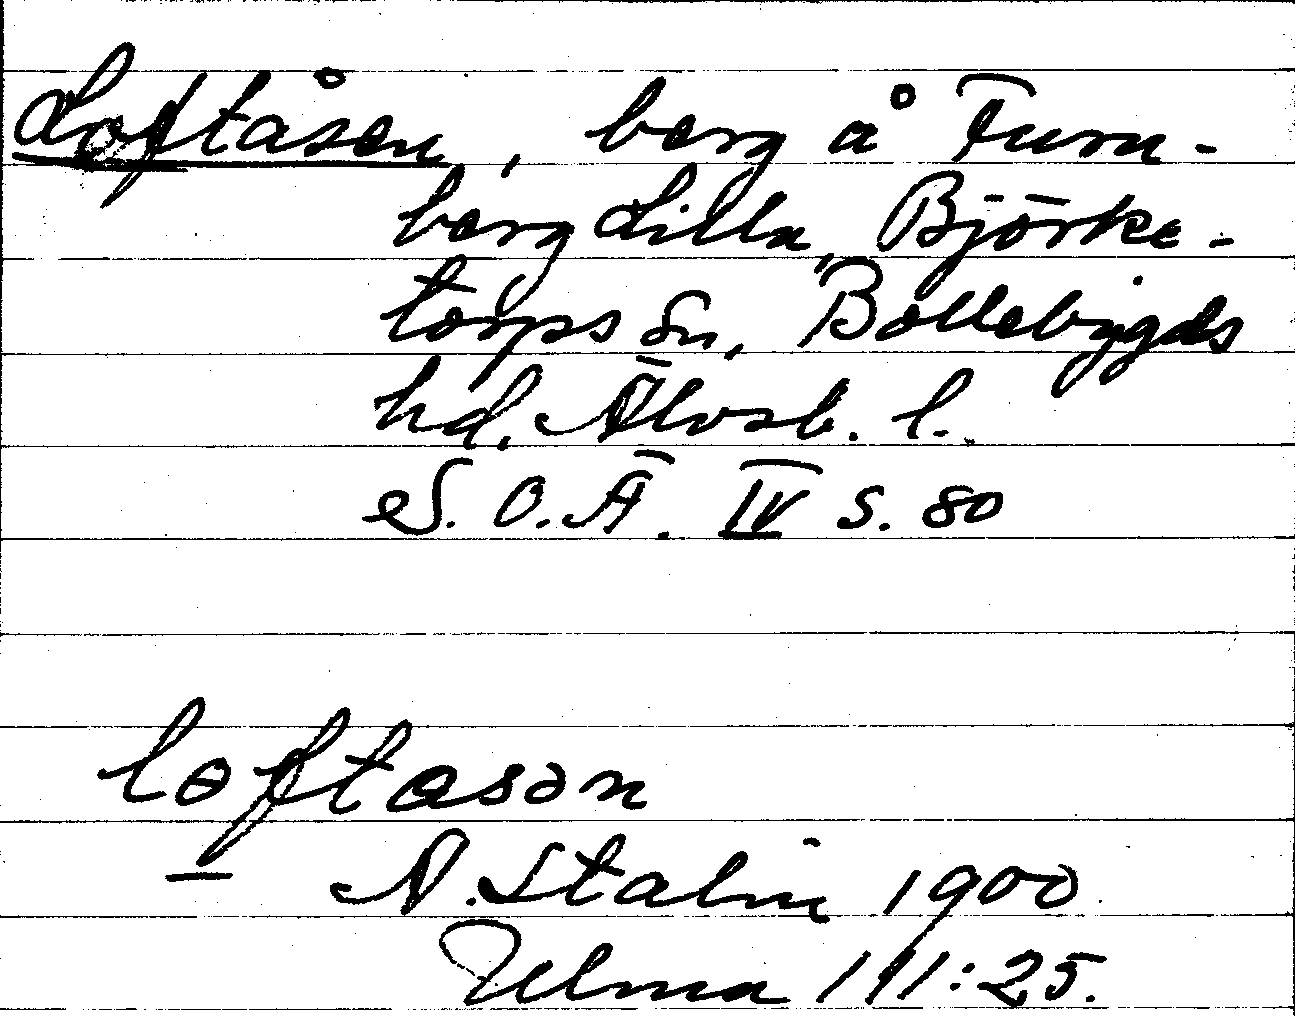 Loftåsen, berg å Furu-
berg Lilla, Björke-
torps sn, Bollebygds
hd. Älvsb. l.
S. O. Ä. IV s. 80
loftasən
A. Stalin 1900
Ulma 111:25.